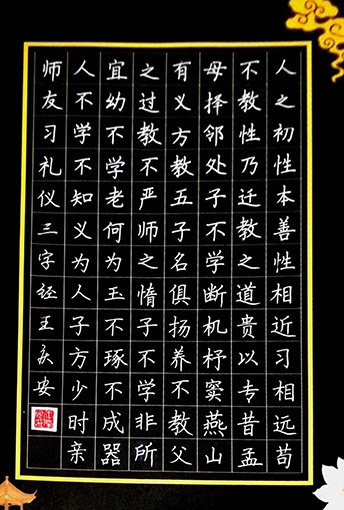 人之初性本善性相近习相远苟
不教性乃迁教之道贵以专昔孟
母择邻处子不学断机杼窦燕山
有义方教五子名俱扬养不教父
之过教不严师之惰子不学非所
宜幼不学老何为玉不琢不成器
人不学不知义为人子方少时亲
师友习礼仪三字经王安